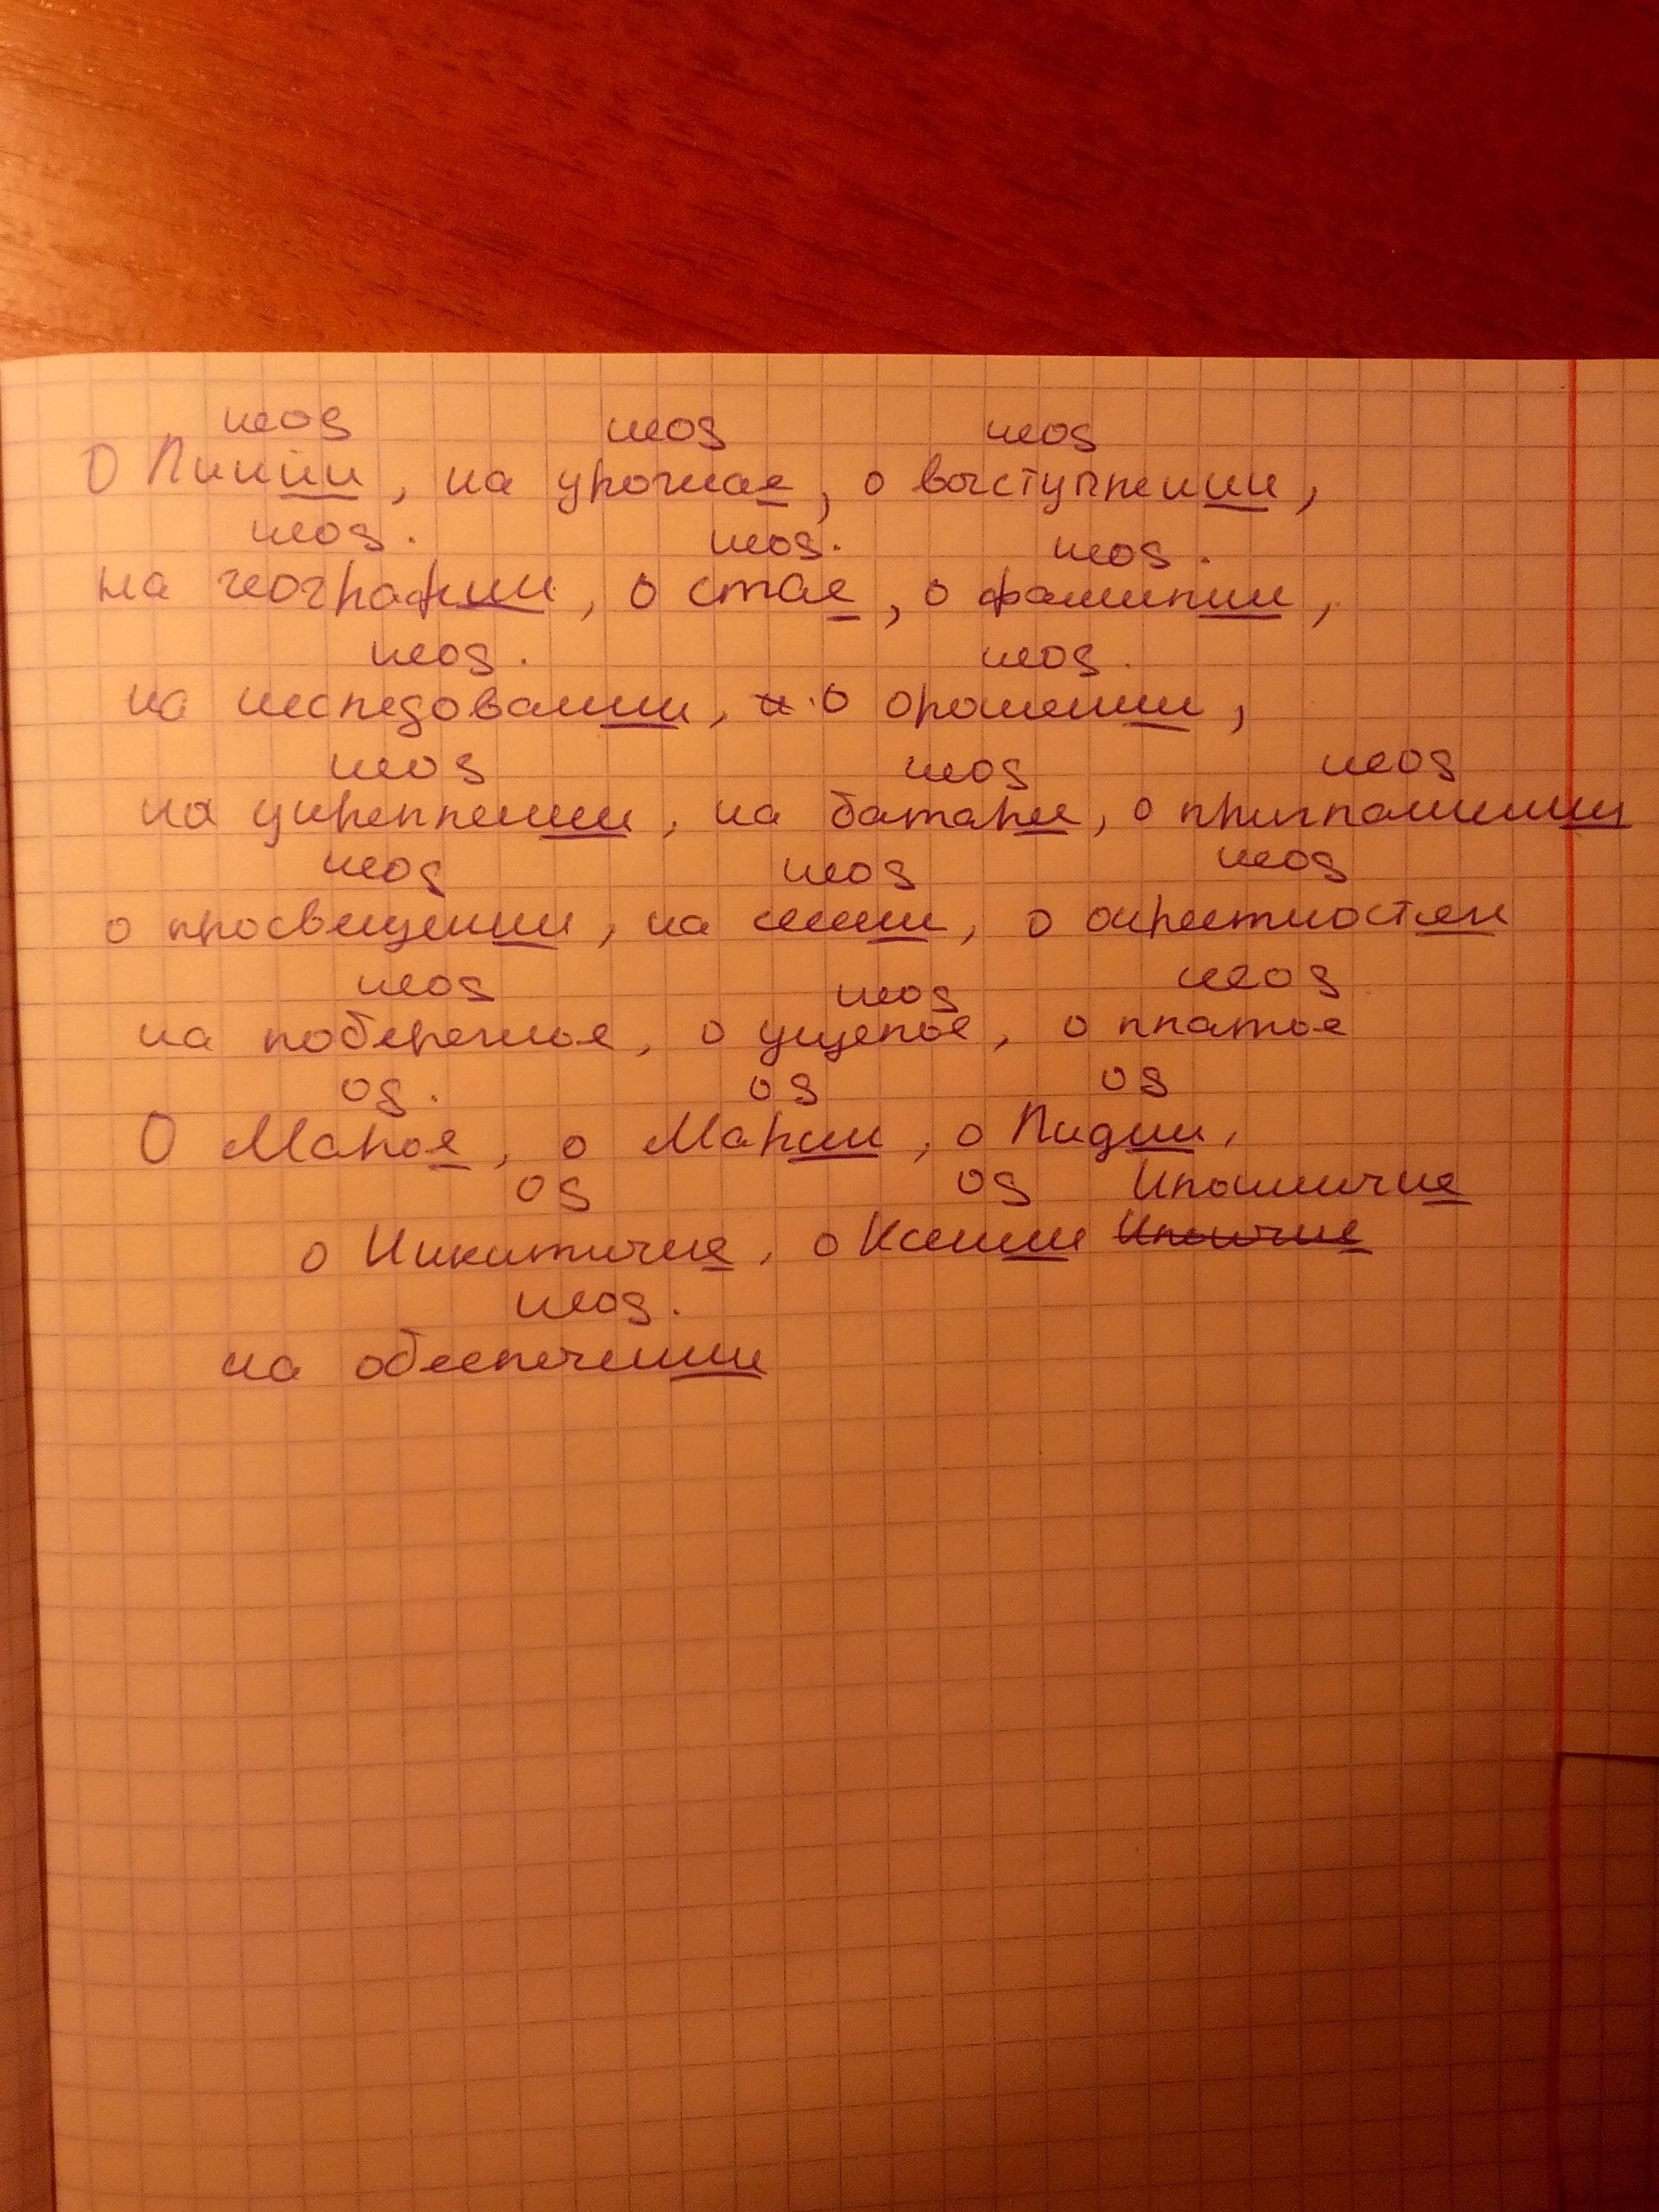 неод неод неод
О Линии, на урожае, о выступлении,
неод. неод. неод.
на географии, о стае, о фамилии,
неод. неод.
на исследовании, о орошении,
неод неод неод
на укреплении, на батарее, о приглашении
неод неод неод
о просвещении, на
о окрестностях
неод неод неод
на побережье, о ущелье, о платье
од. од од
О Марье, о Марии, о Лидии,
од од Ильиничне
о Никитичне, о Ксении
неод.
на обеспечении